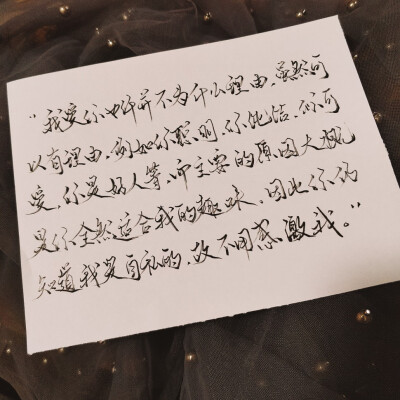 “我爱你也许并不为什么理由，虽然可
以有理由，例如你聪明，你纯洁，你可
爱，你是好人等，但主要的原因大概
是你全然适合我的趣味，因此你仍
知道我是自私的，故不用感激我。”